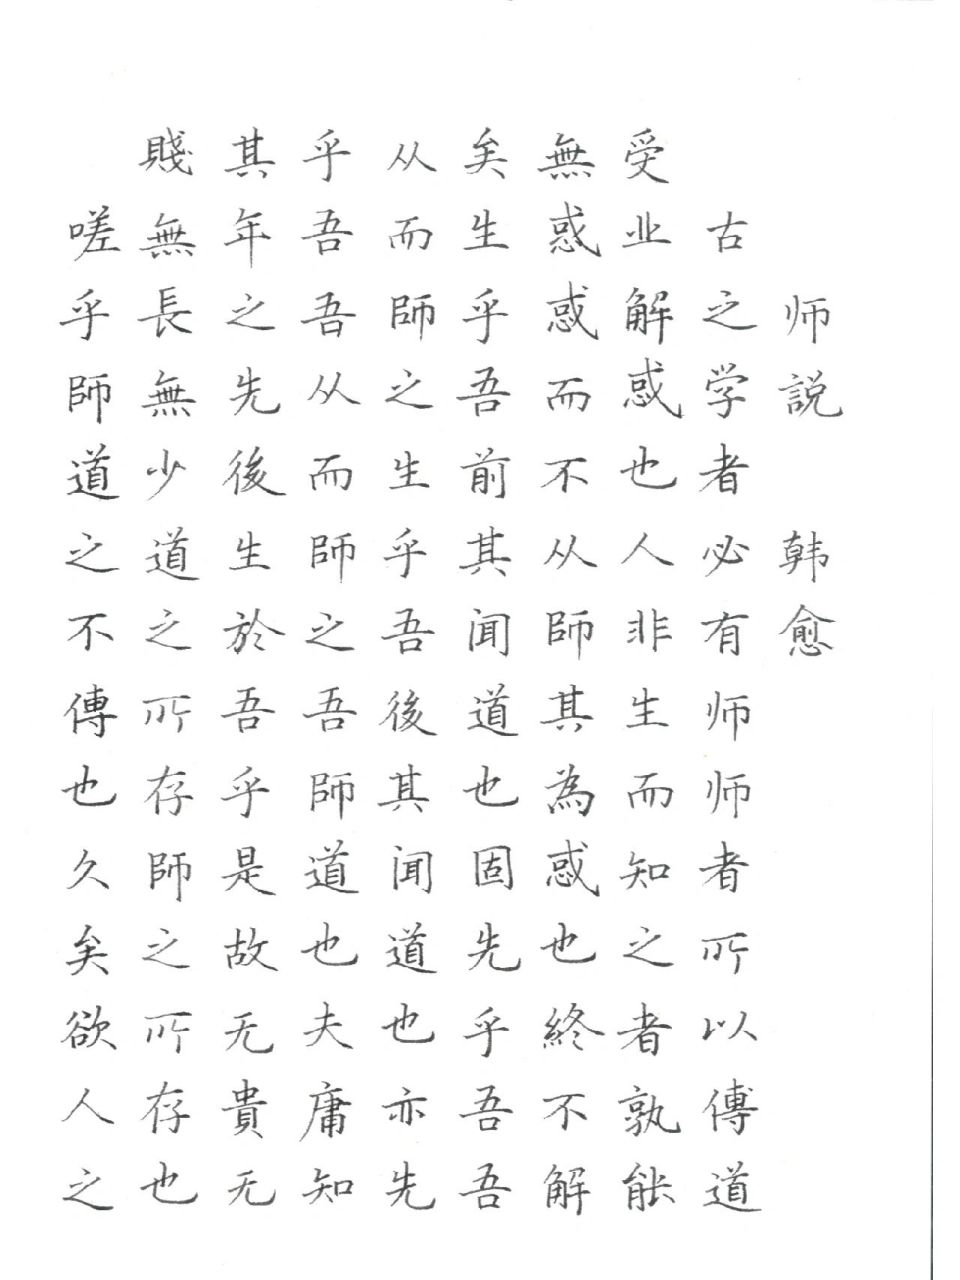 师説 韩愈
古之学者必有师师者所以傳道
受业解惑也人非生而知之者孰能
無惑惑而不从師其為惑也終不解
矣生乎吾前其闻道也固先乎吾吾
从而師之生乎吾後其闻道也亦先
乎吾吾从而師之吾師道也夫庸知
其年之先後生於吾乎是故无貴无
賤無長無少道之所存師之所存也
嗟乎師道之不傳也久矣欲人之